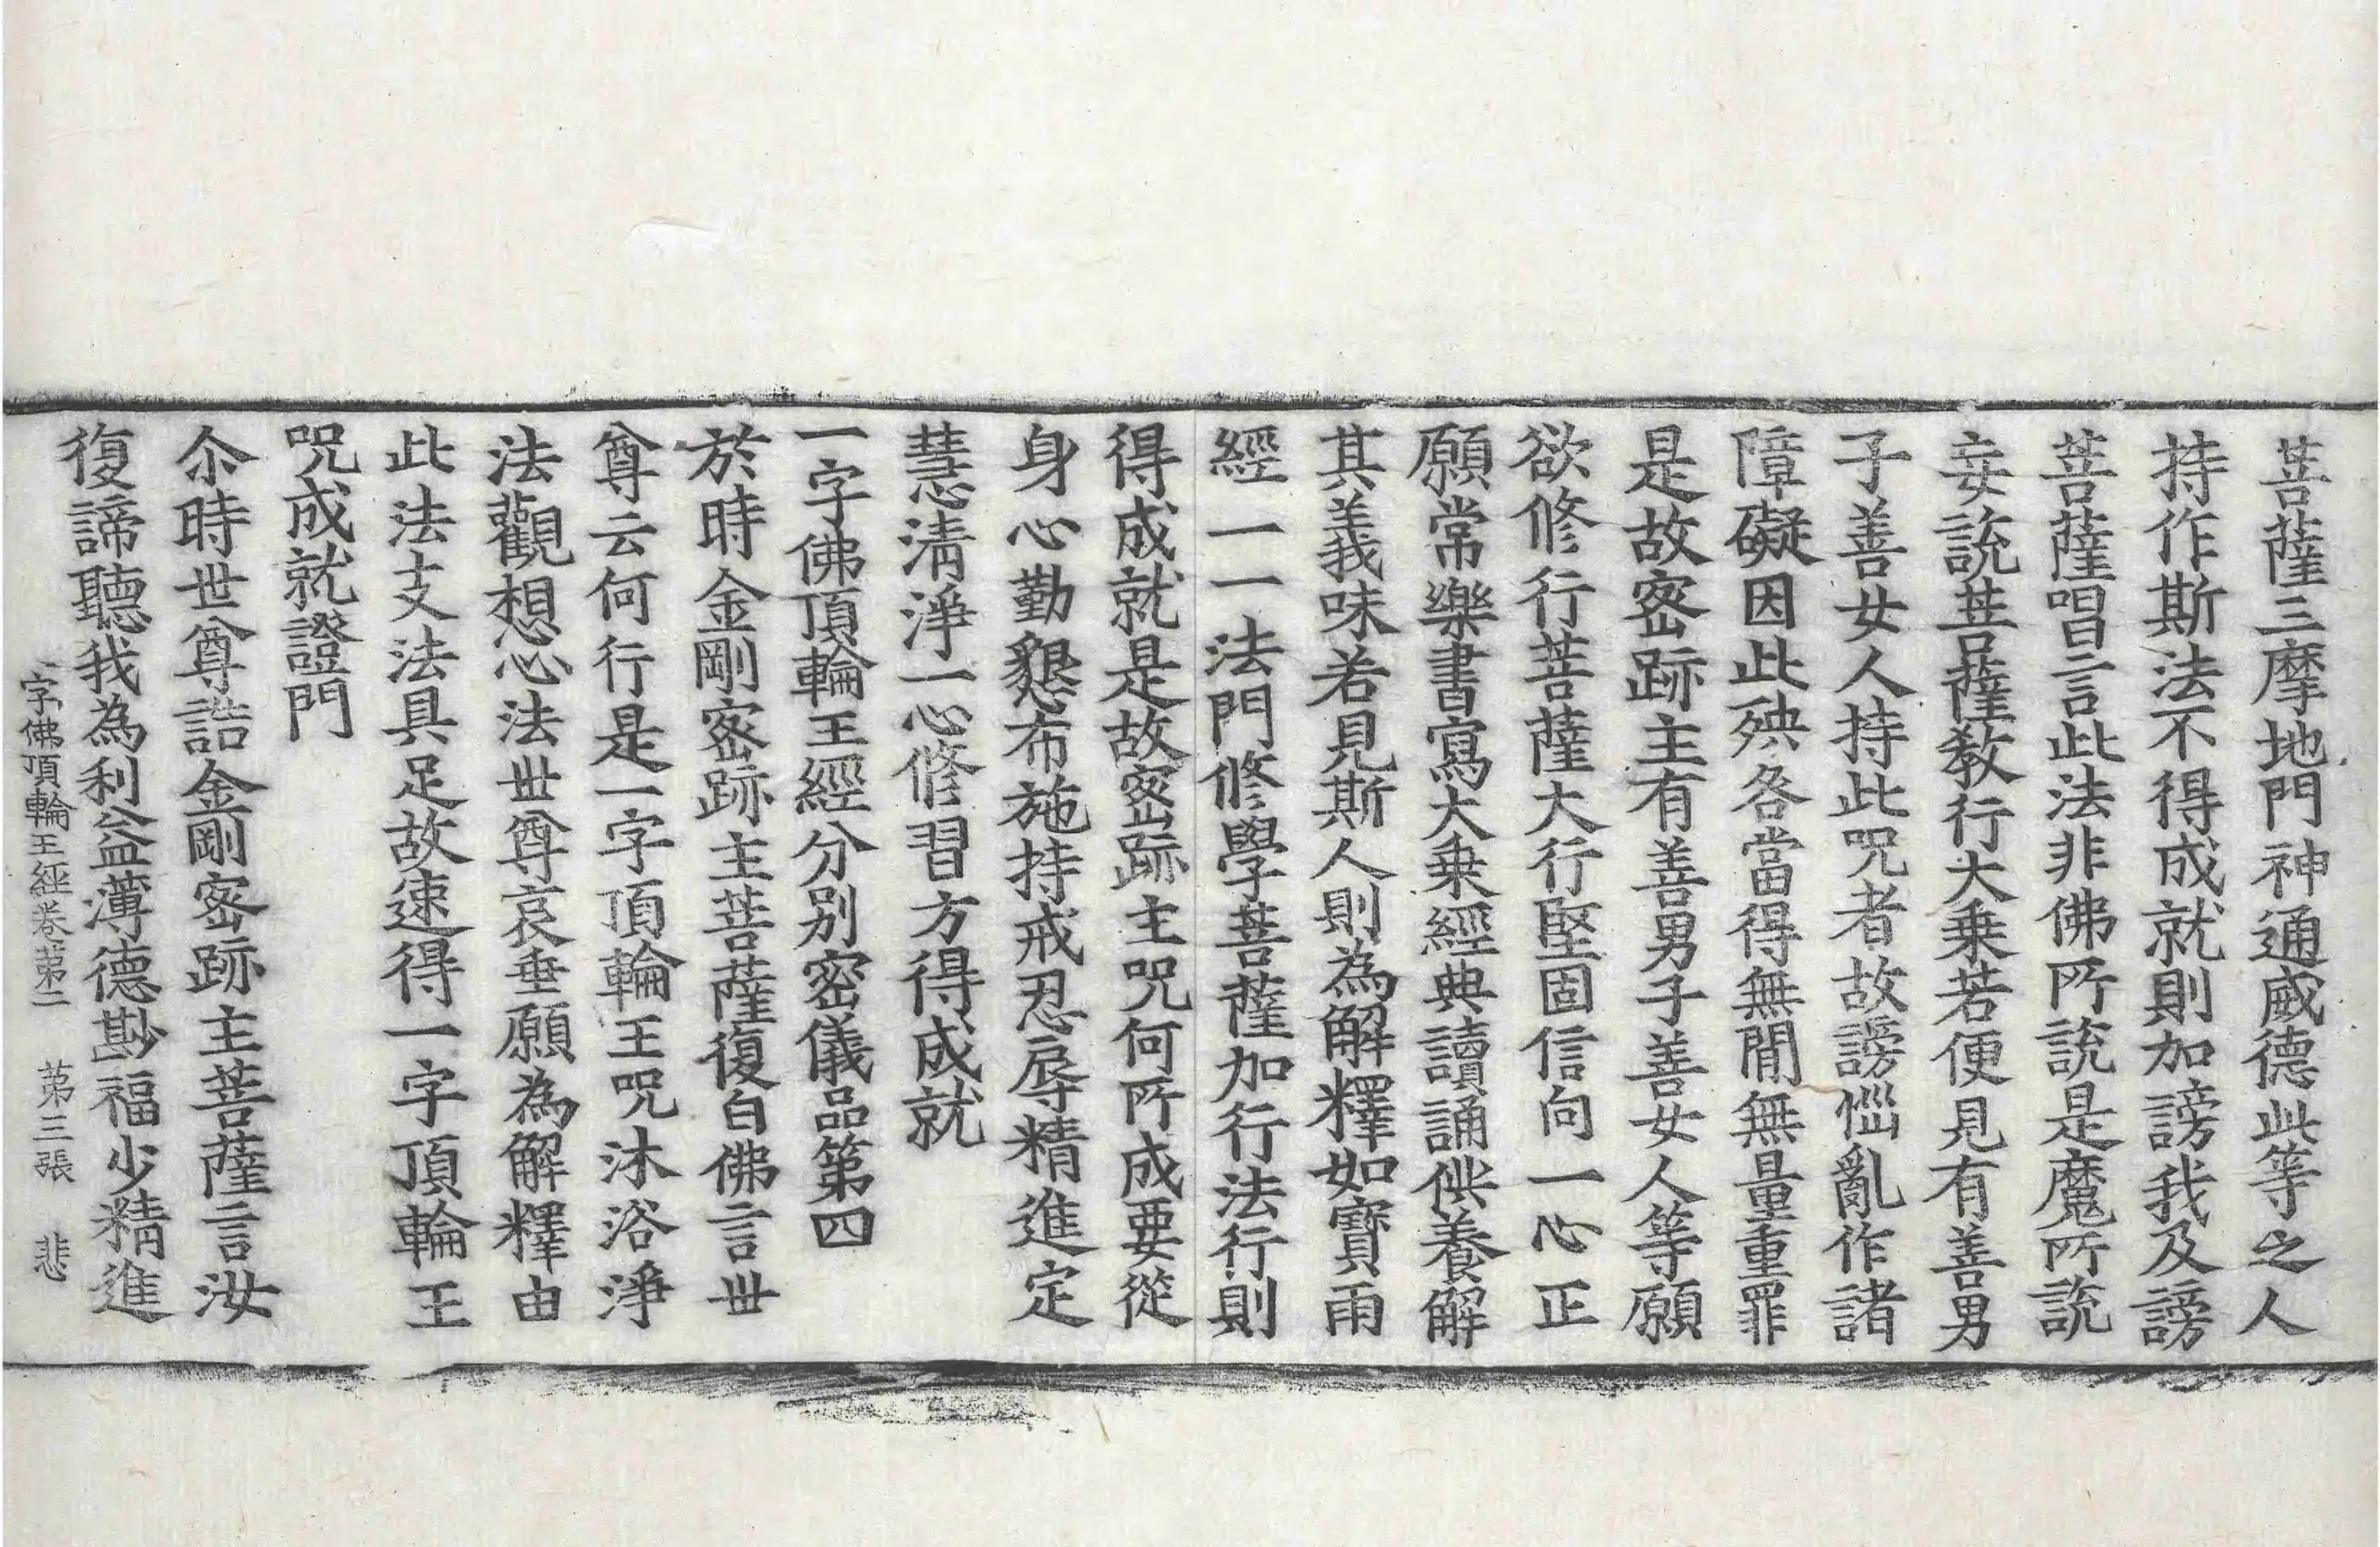 菩薩三摩地門神通威德此等之人
持作斯法不得成就則加謗我及謗
菩薩唱言此法非佛所說是魔所說
妄說菩薩教行大乗若便見有善男
子善女人持此呪者故謗惱亂作諸
障礙因此殃咎當得無間無量重罪
是故密跡主有善男子善女人等願
欲修行菩薩大行堅固信向一心正
願常樂書寫大乗經典讀誦供養解
其義味若見斯人則為解釋如寶雨
經一一法門修學菩薩加行法行則
得成就是故密跡主呪何所成要從
身心勤懇布施持戒忍辱精進定
慧清淨一心修習方得成就
一字佛頂輪王經分別密儀品第四
於時金剛密跡主菩薩復白佛言世
尊云何行是一字頂輪王呪沐浴淨
法觀想心法世尊哀垂願為解釋由
此法支法具足故速得一字頂輪王
呪成就證門
尒時世尊誥金剛密跡主菩薩言汝
復諦聽我為利益薄德尠福少精進
字佛頂輪王經卷第二 第三張 悲